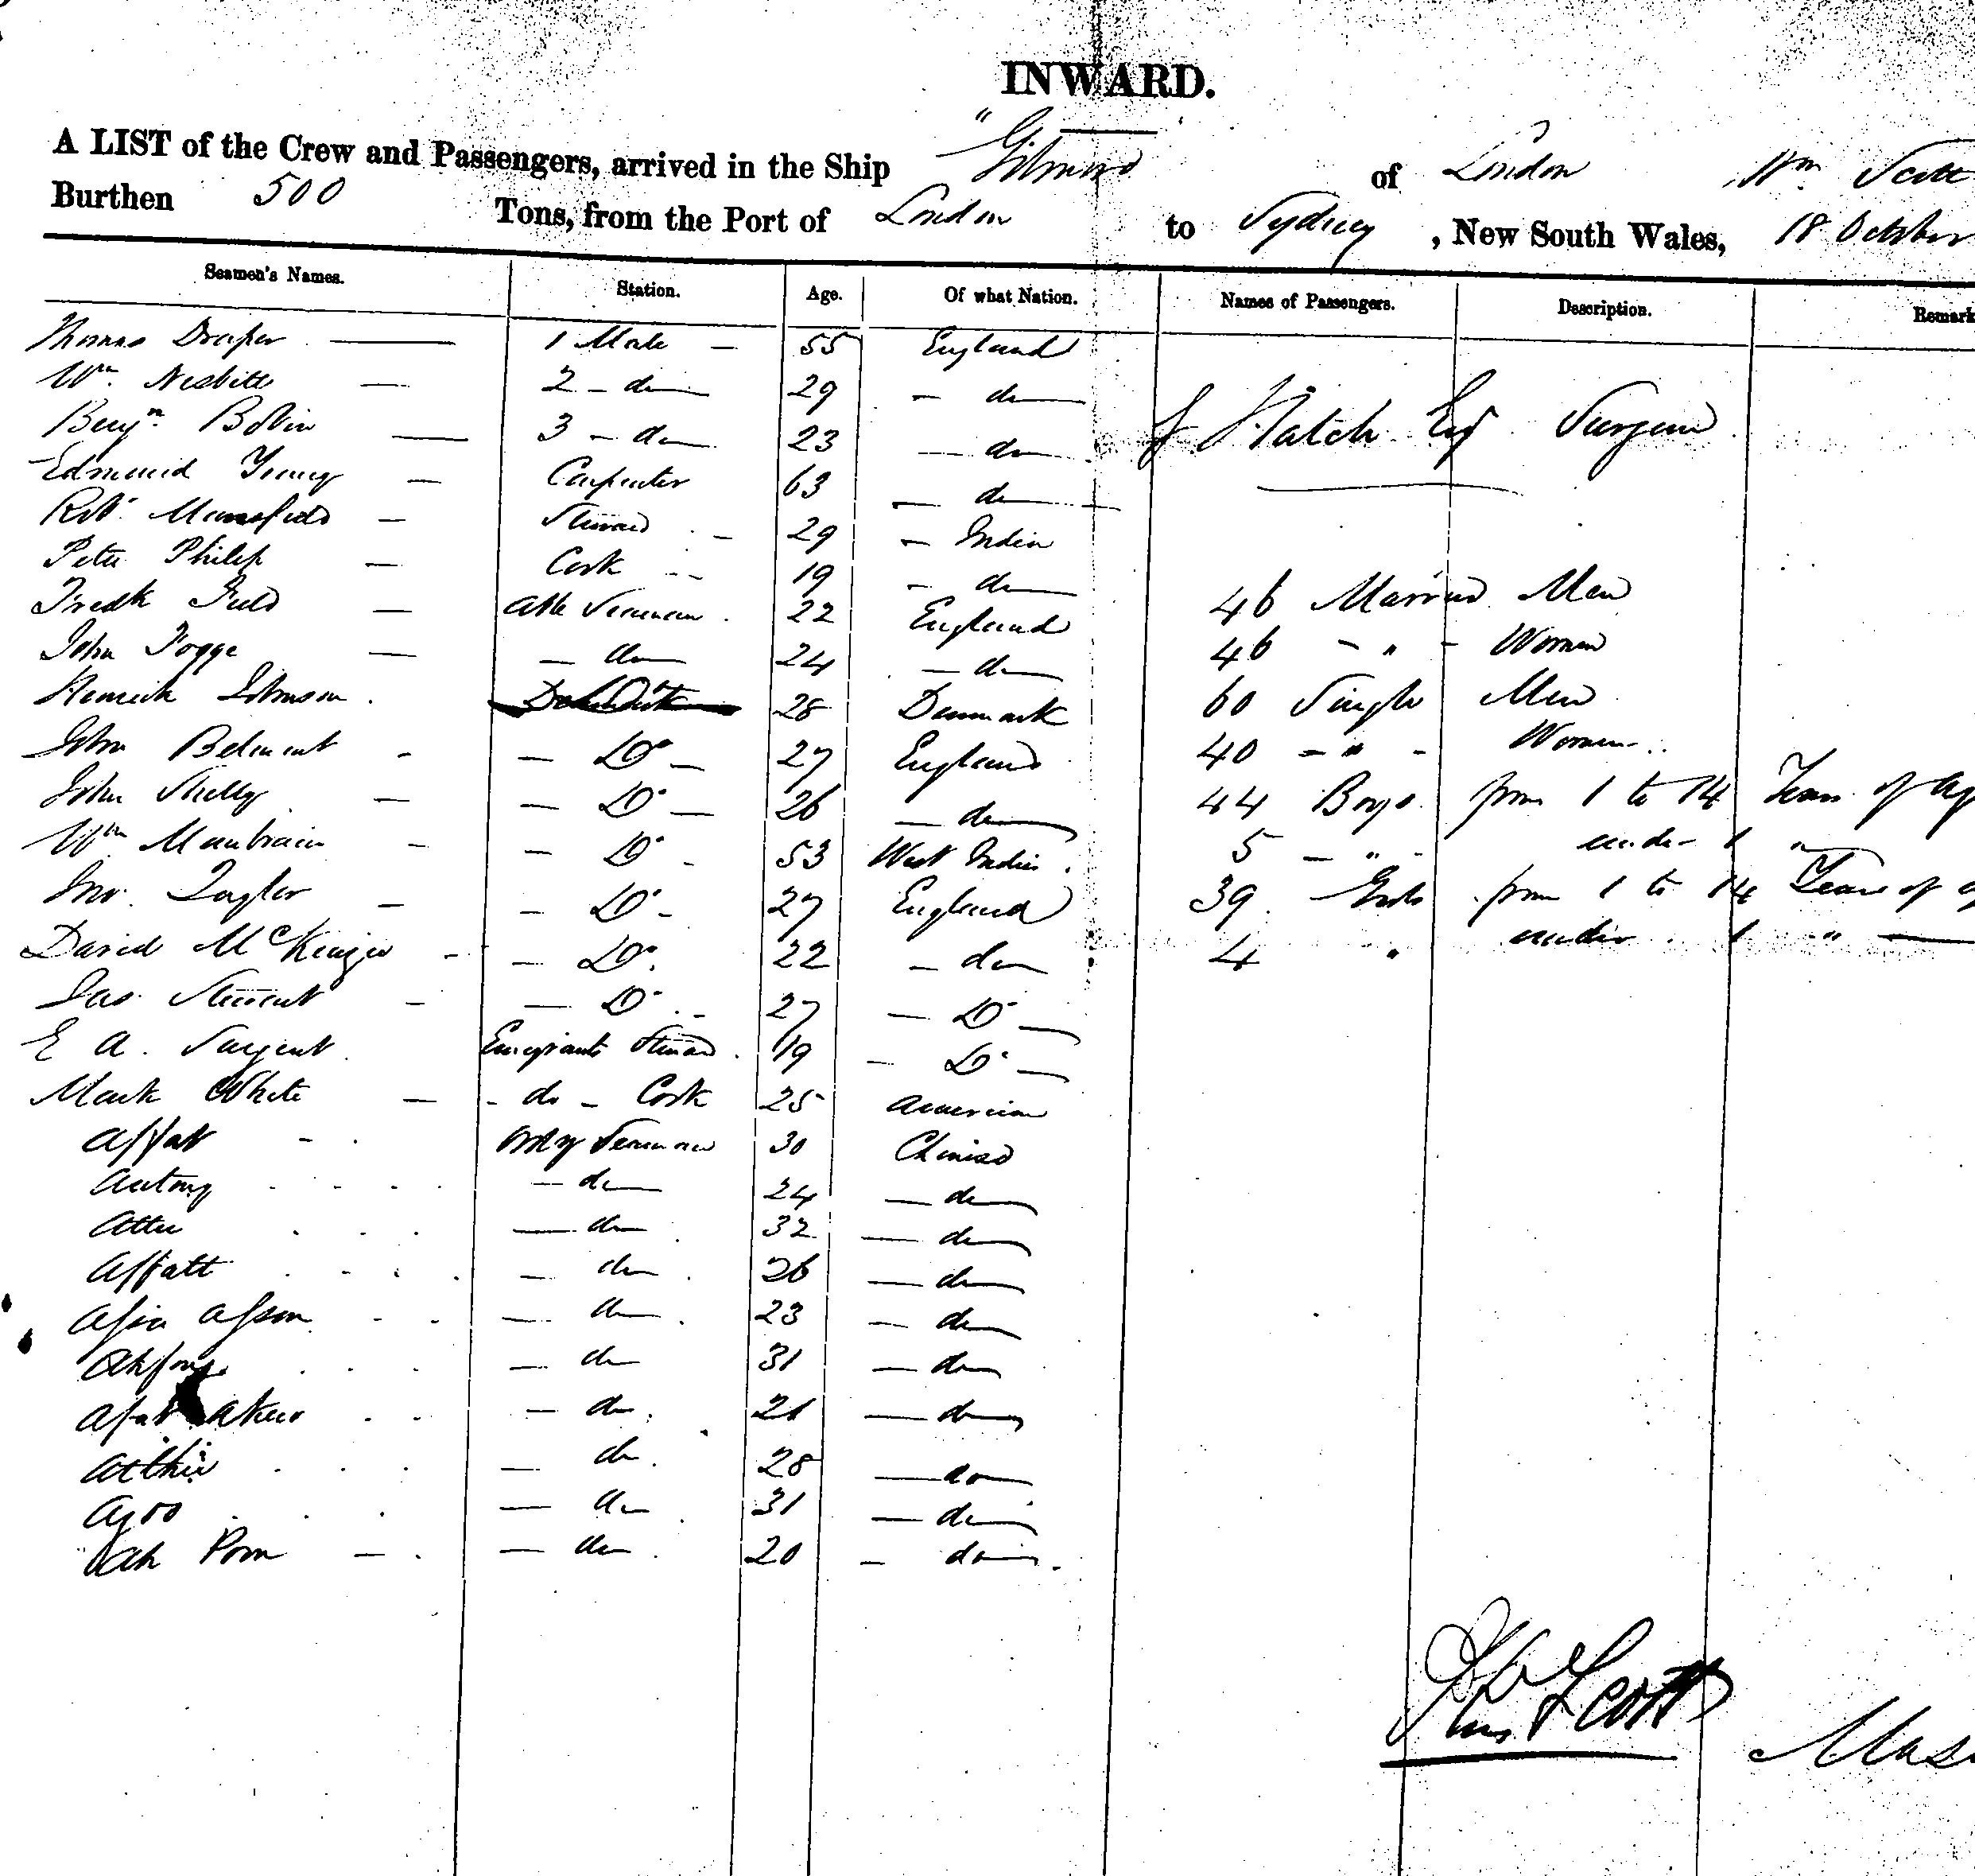 INWARD.
A LIST of the Crew and Passengers, arrived in the Ship "Gilmore of London Wm Scott
Burthen 500 Tons, from the Port of London to Sydney, New South Wales, 18 October
Seamen's Names. Station. Age. Of what Nation. Names of Passengers. Description. Remark
Thomas Draper 1 Mate 55 England
Wm. Nesbitt 2 - do 29 - do
Benjn. 3 - do 23 - do
J Hatch Esq Surgeon
Edmund Young Carpenter 63 - do
Robt. Mansfield Steward 29 - India
Peter Philip Cook 19 - do
Fredk Field Able Seaman 22 England 46 Married Men
John Fogge - do 24 - do 46 - " - Women
Henrich Johnson 28 Denmark 60 Single Men
John Belmont - Do - 27 England 40 - " - Women
John Shelly - Do - 26 - do 44 Boys from 1 to 14 Years of ag
Wm - Do - 53 West Indies 5 - " - under 1 "
Jno. Taylor - Do - 27 England 39 Girls from 1 to 14 Years of a
David McKenzie - Do. 22 - do 4 " under 1 "
Jas. Stewart - Do - 27 - Do
E A. Sargent Emigrants Steward 19 - Do
Mark White - do - Cook 25 American
Affat Ordy Seaman 30 Chinese
Antong - do 24 - do
Attu - do 32 - do
Affatt - do 26 - do
- do 23 - do
Ahfong - do 31 - do
- do 21 - do
Atthie - do 28 - do
Ayoo - do 31 - do
Ah Pom - do 20 - do
Wm Scott Mas